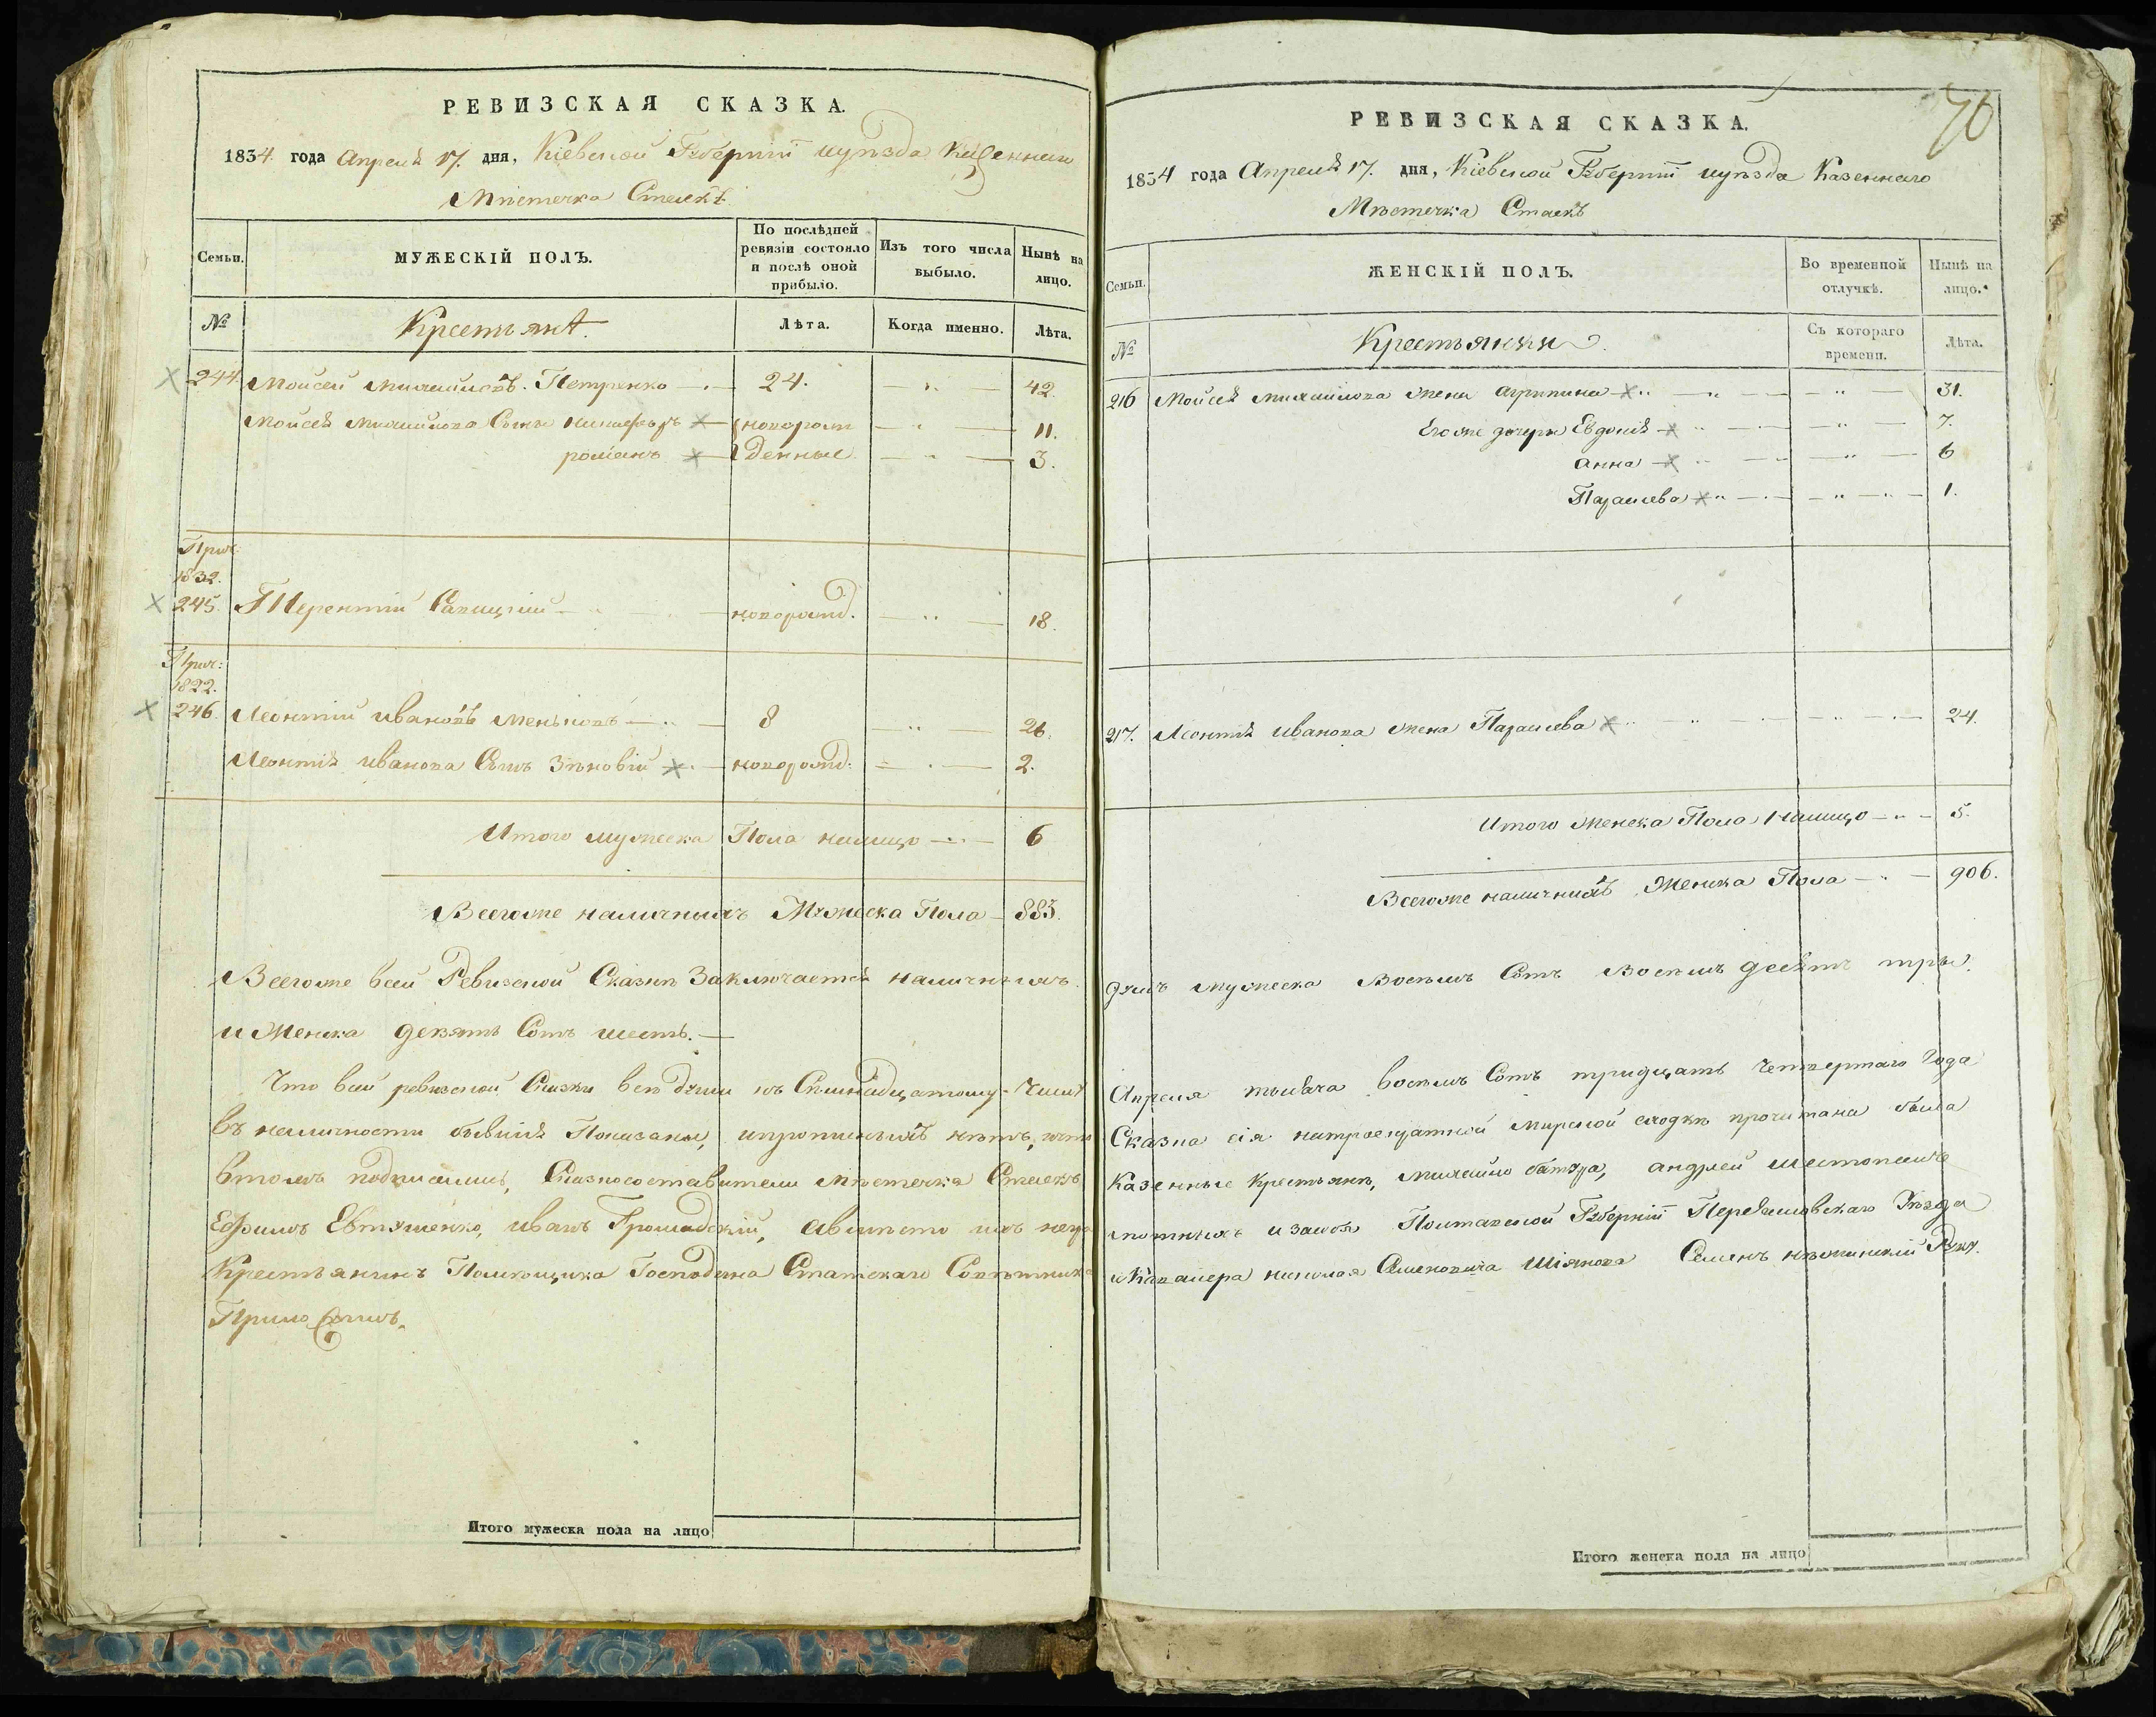 РЕВИЗСКАЯ СКАЗКА.
1834 года Апреля 17. дня, Кіевской Губерніи иуѣзда Казеннаго
Мѣстечка Стаекъ
Семьи.
МУЖЕСКІЙ ПОЛЪ.
По послѣдней ревизіи состояло и послѣ оной прибыло.
Изъ того числа выбыло.
Нынѣ на лицо.
№
Крестьянѣ.
Лѣта.
Когда именно.
Лѣта.
244. Моисей Михайловъ Петренко 24. 42.
Моисея Михайлова Сыны Никифоръ новорож 11.
романъ денные 3.
Прич:
1832.
245. Терентій новорожд. 18.
Прич:
1822.
246. Леонтій ивановъ 8 26.
Леонтія иванова Сынъ Зѣновій новорожд: 2.
Итого мужеска Пола налицо 6
Всегоже наличныхъ Мужеска Пола 883.
Всегоже всей Ревизской Сказкѣ Заключается наличныхъ
и Женска девять Сотъ шесть.
Что всей ревизской Сказки всѣ души къ Семнадцатому Числу
въ наличности бывшія Показаны, ипрописныхъ нѣтъ, что
втомъ подписались, Сказкосоставители мѣстечка Стаекъ
Ефимъ Евтушенко, иванъ Громадскій, авмѣсто ихъ негра
Крестьянинъ Помѣщика Господина Статскаго Совѣтника
Приложилъ.
Итого мужеска пола на лицо
70
РЕВИЗСКАЯ СКАЗКА.
1834 года Апреля 17. дня, Кіевской Губерніи иуѣзда Казеннаго
Мѣстечка Стаекъ
Семьи.
ЖЕНСКІЙ ПОЛЪ.
Во временной отлучкѣ.
Нынѣ на лицо.
№
Крестьянки
Съ котораго времени.
Лѣта.
216 Моисея михайлова жена агрипина 31.
Егоже дочери Евдокія 7.
анна 6
Параскева 1.
217. Леонтія иванова жена Параскева 24.
Итого женска Пола Налицо 5.
Всегоже наличныхъ Женска Пола 906.
душъ мужеска Восемъ Сотъ Восемъ десятъ три
Апреля тысяча восемъ Сотъ тридцать Четвертаго Года
Сказка сія мирской сходкѣ прочитана была
Казенные крестьянѣ, михайло батура, андрей
мотныхъ изаизъ Полтавской Губерніи Переяславскаго Уѣзда
и Кавалера николая Семеновича Семенъ нѣжинскій Руку.
Итого женска пола на лицо